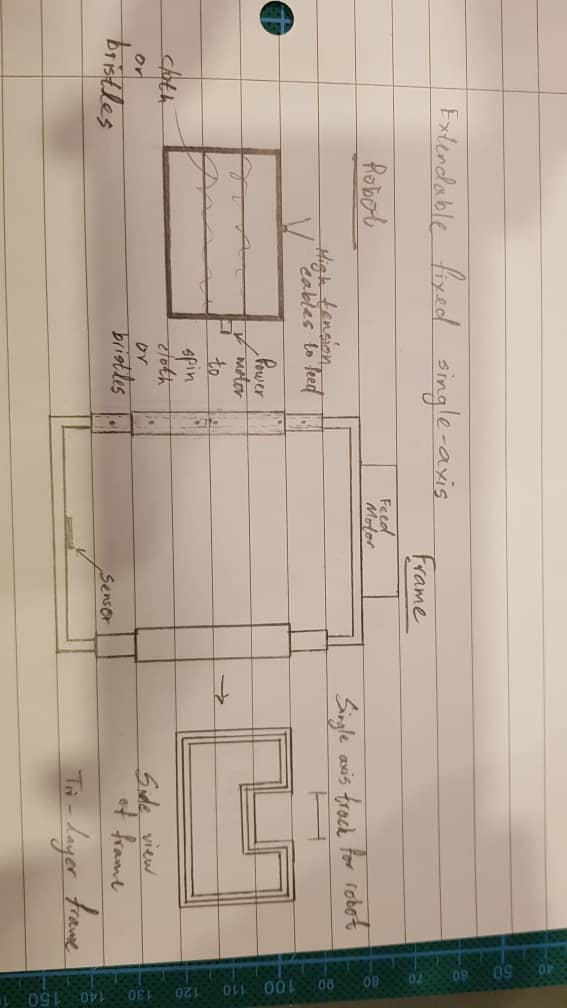 Extendable fixed single-axis
Robot
Frame
High tension
cables to feed
Power
motor
to
spin
cloth
or
bristles
cloth
or
bristles
Feed
Motor
Sensor
Single axis track for robot
Side view
of frame
Tri-layer frame
40
50
60
70
80
90
100
110
120
130
140
150